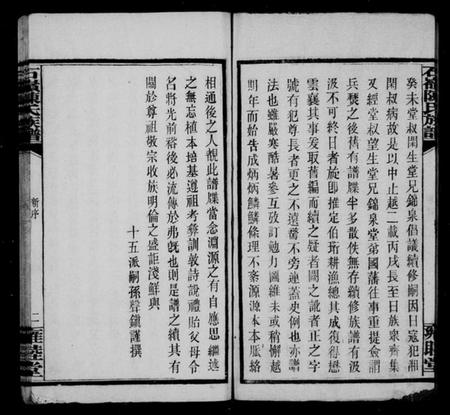 石嶺陳氏族譜
癸未堂叔閏生堂兄錦泉倡議續修嗣因日寇犯湘
閏叔病故是以中止越二載丙戌長至日族衆齊集
又經堂叔望生堂兄錦泉堂弟國藩往事重提僉謂
兵燹之後舊有譜牒半多散佚無存續修族譜有岌
汲不可終日者旋即推定伯珩耕漁總其成復得懋
雲襄其事爰取舊編而續之疑者闕之訛者正之字
號有犯尊長者更之不遠騖不旁連蓋史例也亦家
法也雖嚴寒酷暑參互攷訂勉力圖維未或稍懈越
期年而始告成炳炳鱗鱗條理不紊源源本本脈絡
雍睦堂
相通後之人覩此譜牒當念淵源之有自應思繼述
之無忘植本培基遵祖考彝訓敦詩說禮貽父母令
名將光前裕後必流傳於弗旣也則是譜之續其有
關於尊祖敬宗收族明倫之盛詎淺鮮與
十五派嗣孫聲鎮謹撰
石嶺陳氏族譜
新序
二
雍睦堂